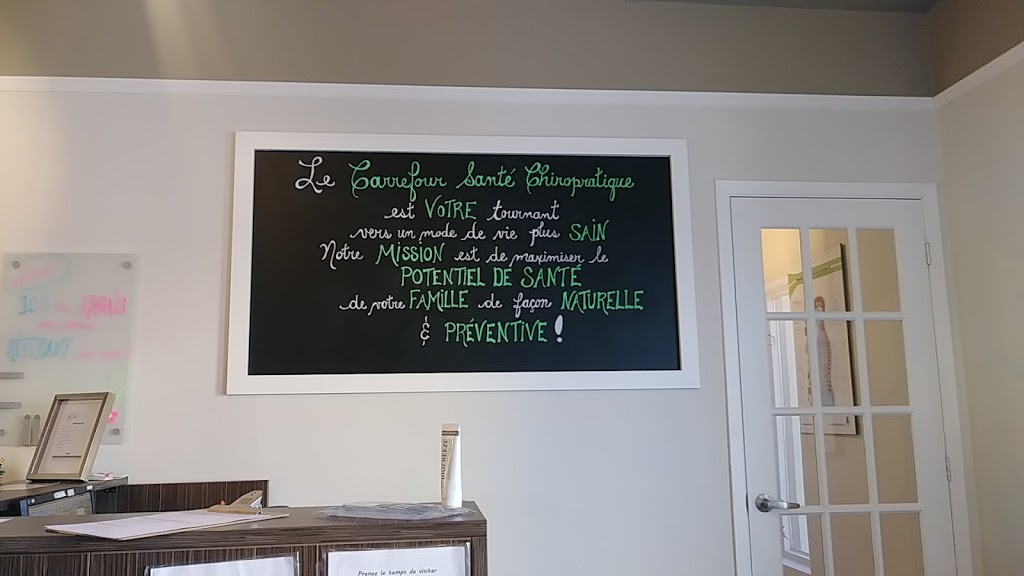 Le Carrefour Santé Chiropratique
est VOTRE tournant
vers un mode de vie plus SAIN
Notre MISSION est de maximiser le
POTENTIEL DE SANTÉ
de votre FAMILLE de façon NATURELLE
& PRÉVENTIVE !
10$ de RABAIS
BIOFREEZE
Prenez le temps de visiter